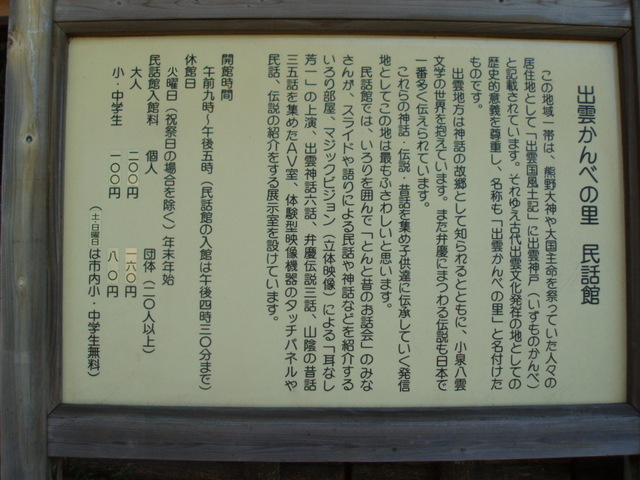 出雲かんべの里　民話館
この地域一帯は、熊野大神や大国主命を祭っていた人々の
居住地として「出雲国風土記」に出雲神戸（いずものかんべ）
と記載されています。それゆえ古代出雲文化発祥の地としての
歴史的意義を尊重し、名称も「出雲かんべの里」と名付けた
ものです。
出雲地方は神話の故郷として知られるとともに、小泉八雲
文学の世界を抱えています。また弁慶にまつわる伝説も日本で
一番多く伝えられています。
これらの神話・伝説・昔話を集め子供達に伝承していく発信
地としてこの地は最もふさわしいと思います。
民話館では、いろりを囲んで「とんと昔のお話会」のみな
さんが、スライドや語りによる民話や神話などを紹介する
いろり部屋、マジックビジョン（立体映像）による「耳なし
芳一」の上演、出雲神話六話、弁慶伝説三話、山陰の昔話
三五話を集めたAV室、体験型映像機器のタッチパネルや
民話、伝説の紹介をする展示室を設けています。
開館時間
午前九時〜午後五時（民話館の入館は午後四時三〇分まで）
休館日
火曜日（祝祭日の場合を除く）年末年始
民話館入館料　個人　団体（二〇人以上）
大人　二〇〇円　一六〇円
小・中学生　一〇〇円　八〇円
（土・日曜日は市内小・中学生無料）